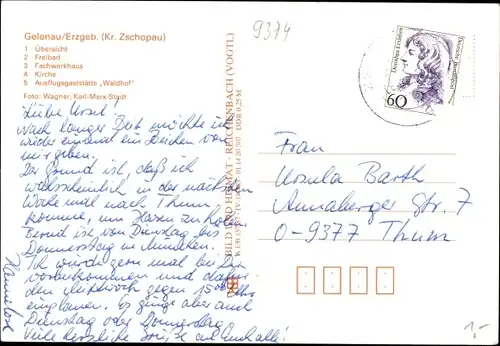 9374
Gelenau/Erzgeb. (Kr. Zschopau)
1 Übersicht
2 Freibad
3 Fachwerkhaus
4 Kirche
5 Ausflugsgaststätte „Waldhof"
Foto: Wagner, Karl-Marx-Stadt
Liebe Ursel!
Nach langer Zeit möchte ich
wieder einmal ein Zeichen von
mir geben.
Der Grund ist, daß ich
wahrscheinlich in der nächsten
Woche mal nach Thum
komme, um Hasen zu holen.
Bernd ist von Dienstag bis
Donnerstag in München.
Ich würde gern mal bei Dir
vorbeikommen und dafür
den Mittwoch gegen 15 Uhr
einplanen. Es ginge aber auch
Dienstag oder Donnerstag
Viele herzliche Grüße an Euch alle!
Hannelose
BILD UND HEIMAT · REICHENBACH (VOGTL)
DDR 0,25 M
Dorothea Erxleben
Deutsche Bundespost
60
Frau
Ursula Barth
Annaberger Str. 7
O-9377 Thum
1,-